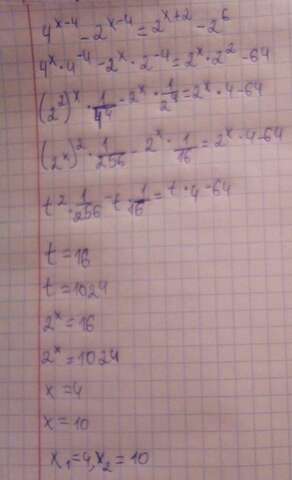 4^(x-4) - 2^(x-4) = 2^(x+2) - 2^6
4^x · 4^(-4) - 2^x · 2^(-4) = 2^x · 2^2 - 64
(2^2)^x · 1/4^4 - 2^x · 1/2^4 = 2^x · 4 - 64
(2^x)^2 · 1/256 - 2^x · 1/16 = 2^x · 4 - 64
t^2 · 1/256 - t · 1/16 = t · 4 - 64
t = 16
t = 1024
2^x = 16
2^x = 1024
x = 4
x = 10
x₁ = 4, x₂ = 10